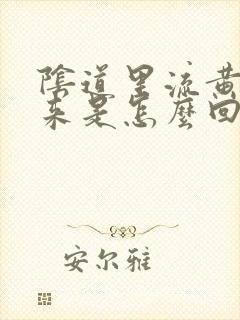 陰道里流黃
來是怎麼回
安尔雅